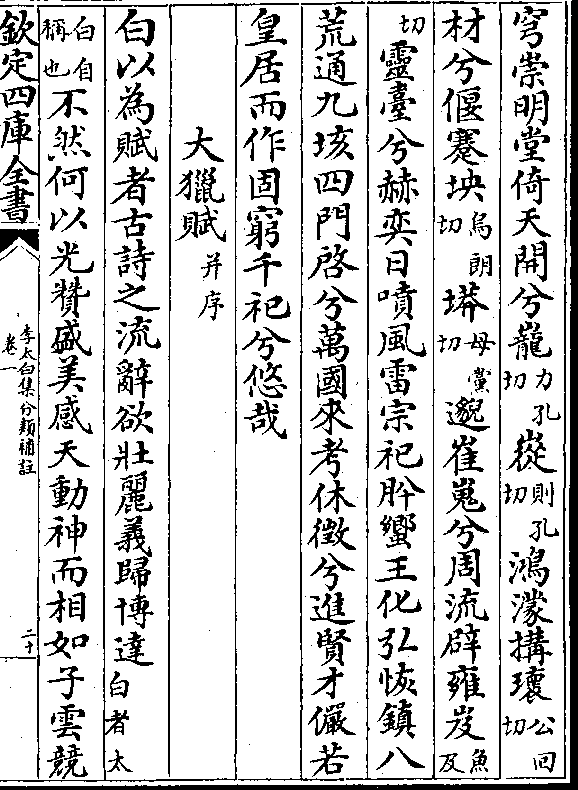 穹崇明堂倚天開兮巃力孔切嵸則孔切鴻濛搆瓌公回切
材兮偃蹇坱烏朗切壾母黨切邈崔嵬兮周流辟雍岌魚及
切靈臺兮赫奕日噴風雷宗祀肸蠁王化弘恢鎮八
荒通九垓四門啓兮萬國來考休徵兮進賢才儼若
皇居而作固窮千祀兮悠哉
大獵賦并序
白以為賦者古詩之流辭欲壯麗義歸博達白者太
白自稱也不然何以光贊盛美感天動神而相如子雲競
欽定四庫全書
李太白集分類補註
卷一
二十